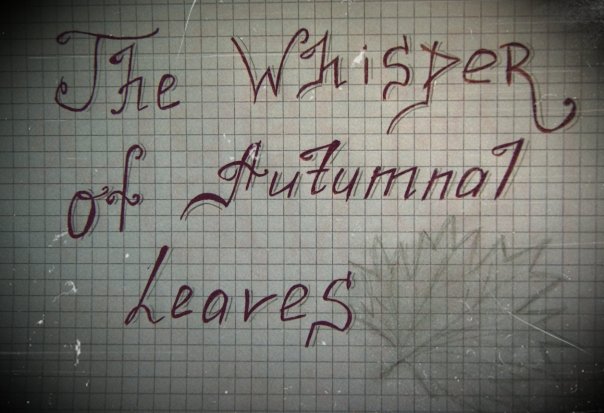 The Whisper
of Autumnal
Leaves